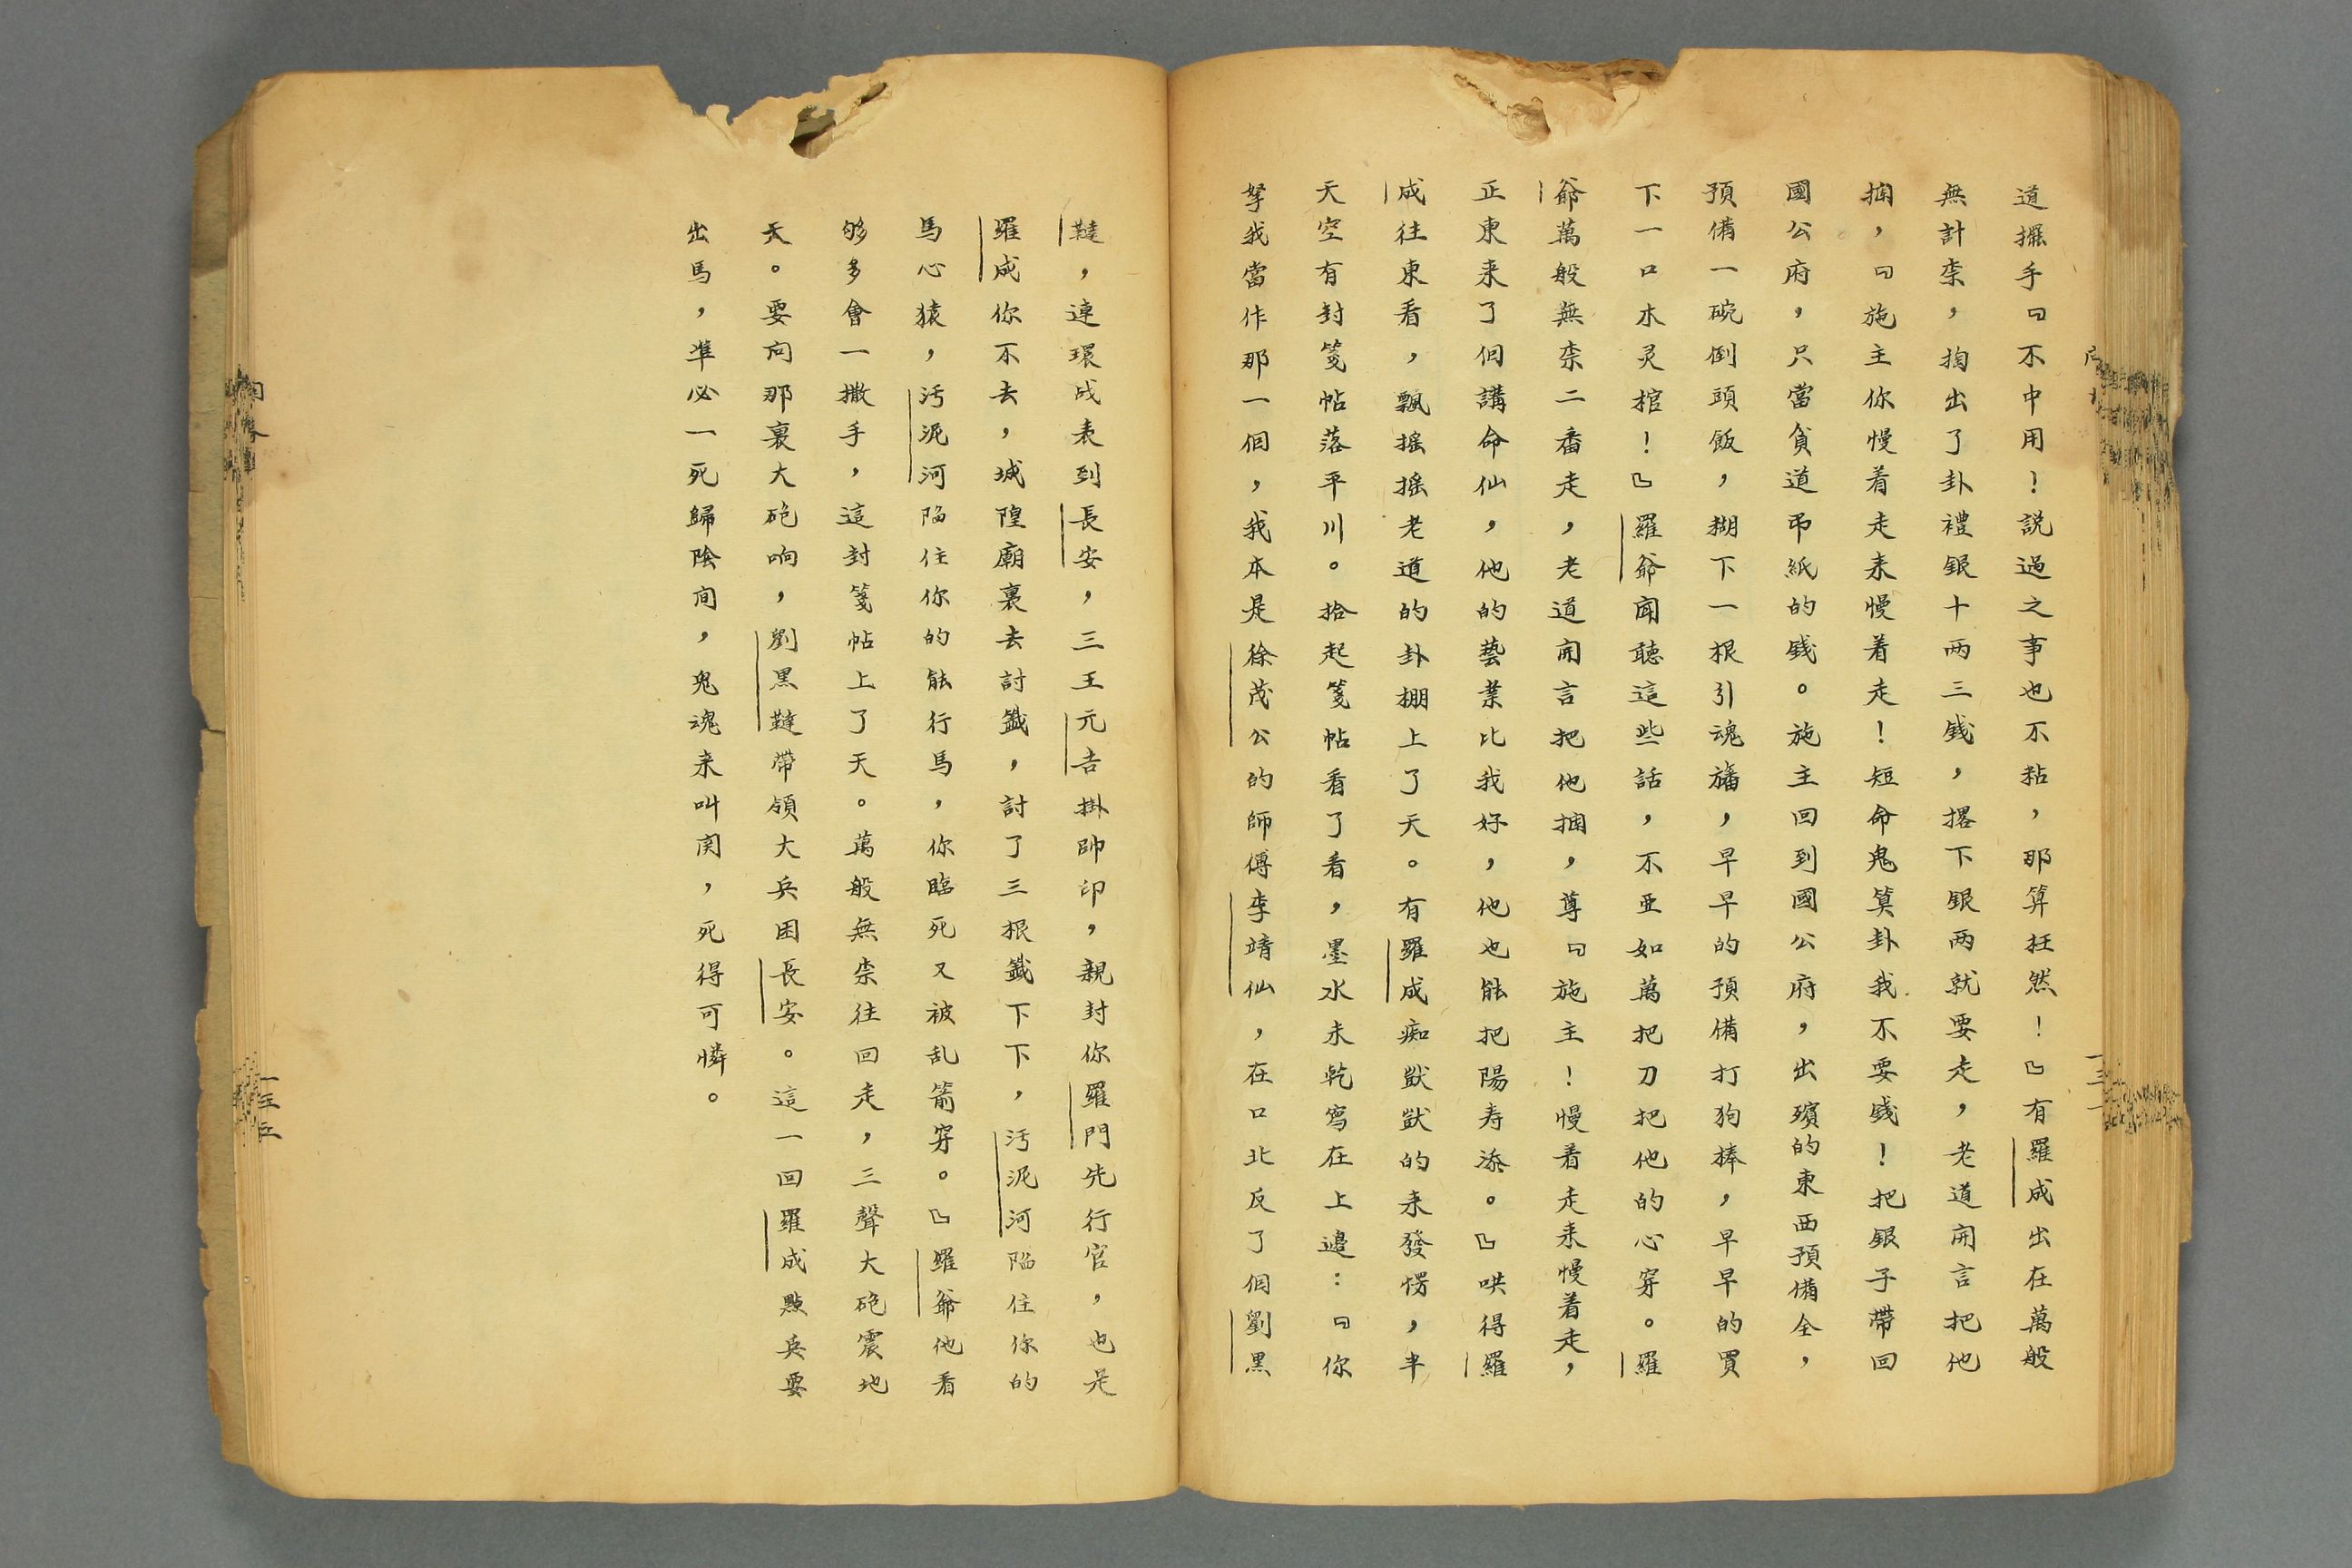 道擺手『不中用！説過之事也不粘，那算枉然！』有羅成出在萬般
無計柰，掏出了卦禮銀十两三銭，撂下銀两就要走，老道開言把他
攔，『施主你慢着走来慢着走！短命鬼算卦我不要銭！把銀子帶回
國公府，只當貧道吊紙的銭。施主回到國公府，出殯的東西預備全，
預備一碗倒頭飯，糊下一根引魂旛，早早的預備打狗棒，早早的買
下一口木灵棺！』羅爺聞聽這些話，不亚如萬把刀把他的心穿。羅
爺萬般無柰二番走，老道開言把他攔，尊『施主！慢着走来慢着走，
正東来了個講命仙，他的藝業比我好，他也能把陽寿添。』哄得羅
成往東看，飄摇摇老道的卦棚上了天。有羅成痴獃獃的来發愣，半
天空有封箋帖落平川。拾起箋帖看了看，墨水未乾寫在上邉：『你
拏我當作那一個，我本是徐茂公的師傅李靖仙，在口北反了個劉黑
韃，連環战表到長安，三王元吉掛帥印，親封你羅門先行官，也是
羅成你不去，城隍廟裏去討籤，討了三根籤下下，汚泥河陷住你的
馬心猿，汚泥河陷住你的能行馬，你臨死又被乱箭穿。』羅爺他看
够多會一撒手，這封箋帖上了天。萬般無柰往回走，三聲大砲震地
天。要问那裏大砲响，劉黑韃帶領大兵困長安。這一回羅成點兵要
出馬，準必一死歸陰间，鬼魂来叫関，死得可憐。